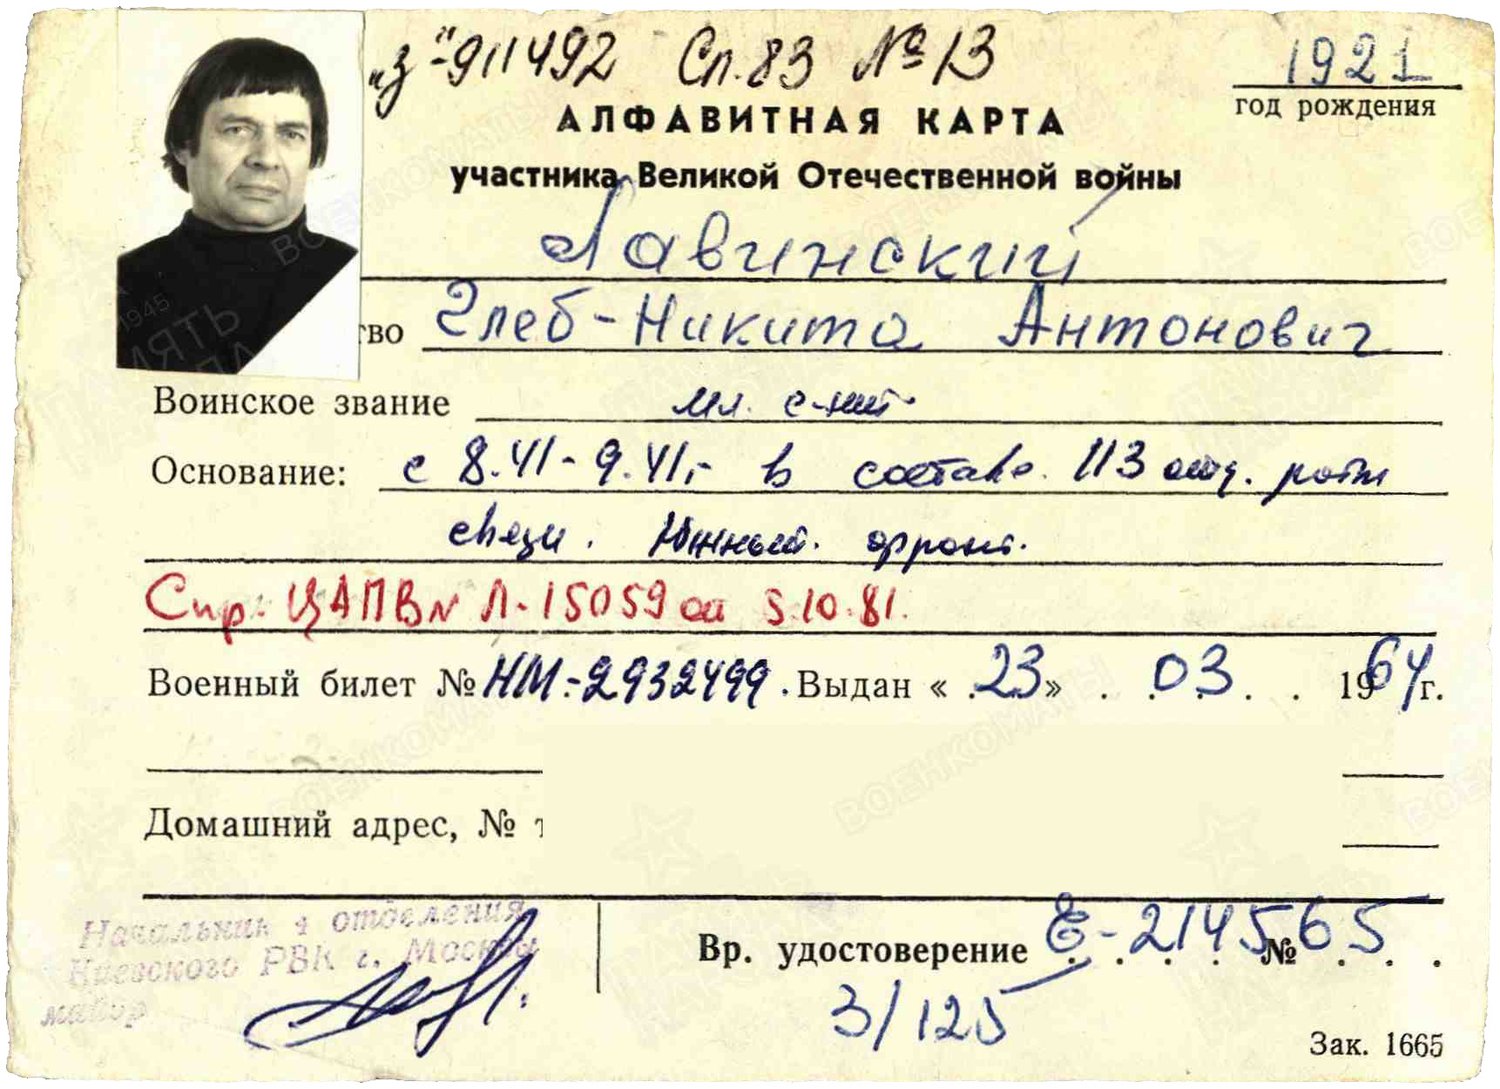 "З"-911492 Сп.83 №13
1921
год рождения
АЛФАВИТНАЯ КАРТА
участника Великой Отечественной войны
Лавинский
тво Глеб-Никита Антонович
Воинское звание мл. с-нт
Основание: с 8.41-9.41г. в составе 113 отд. роты
связи. Южный фронт.
Спр. ЦАПВ № Л-15059 от 5.10.81.
Военный билет № НМ-2932499. Выдан « 23 » 03 1964 г.
Домашний адрес, № т
Начальник 4 отделения
Киевского РВК г. Москвы
майор
Вр. удостоверение Е-214565 №
3/125
Зак. 1665